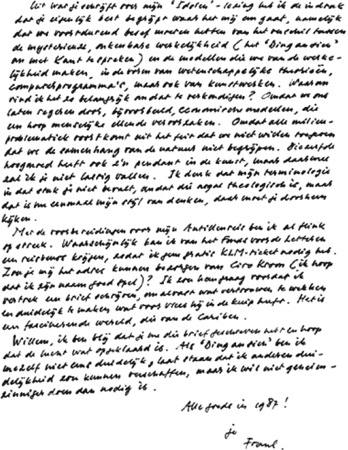 Uit wat je schrijft over mijn "Idolen"-lezing heb ik de indruk
dat je eigenlijk best begrijpt waar het mij om gaat, namelijk
dat we voortdurend besef moeten hebben van het verschil tussen
de mysterieuze, onkenbare werkelijkheid (het "Ding an sich"
om met Kant te spreken) en de modellen die we van de werke-
lijkheid maken, in de vorm van wetenschappelijke theorieën,
computerprogramma's, maar ook van kunstwerken. Waarom
vind ik het zo belangrijk om dat te verkondigen? Omdat we ons
laten regeren door, bijvoorbeeld, economische modellen, die
een hoop menselijke ellende veroorzaken. Omdat alle milieu-
problematiek voortkomt uit het feit dat we niet willen toegeven
dat we de samenhang van de natuur niet begrijpen. Diezelfde
hoogmoed heeft ook z'n pendant in de kunst, maar daarover
zal ik je niet lastig vallen. Ik denk dat mijn terminologie
in dat stuk je niet bevalt, omdat die nogal theologisch is, maar
dat is nu eenmaal mijn stijl van denken, daar moet je doorheen
kijken.
Met de voorbereidingen voor mijn Antillenreis ben ik al flink
op streek. Waarschijnlijk kan ik van het Fonds voor de Letteren
een reisbeurs krijgen, zodat ik geen gratis KLM-ticket nodig heb.
Zou je mij het adres kunnen bezorgen van Ciro Kroon (ik hoop
dat ik zijn naam goed spel)? Ik zou hem graag voordat ik
vertrek een brief schrijven, om alvast wat vertrouwen te wekken
en duidelijk te maken wat voor vlees hij in de kuip heeft. Het is
een fascinerende wereld, die van de Cariben.
Willem, ik ben blij dat je me die brief geschreven hebt en hoop
dat de lucht wat opgeklaard is. Als "Ding an sich" ben ik
mezelf niet eens duidelijk, laat staan dat ik anderen dui-
delijkheid zou kunnen verschaffen, maar ik wil niet geheim-
zinniger doen dan nodig is.
Alle goeds in 1987!
je
Frans.